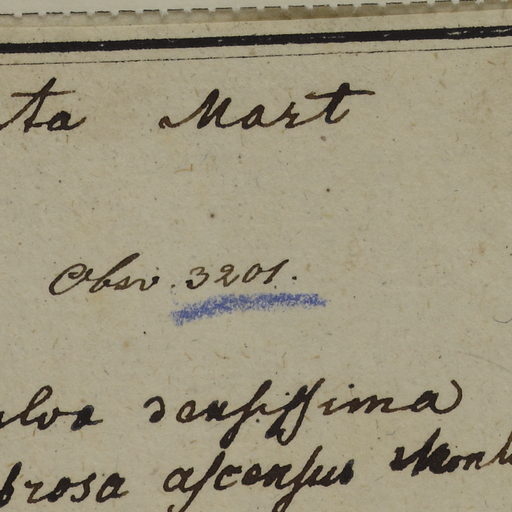 ta Mart
Obsv. 3201.
ylva densissima
brosa ascensus Mont